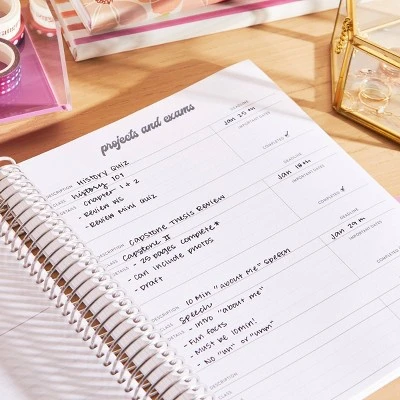 projects and exams
DESCRIPTION HISTORY QUIZ
DEADLINE Jan 25th
CLASS history 101
IMPORTANT DATES
DETAILS Chapter 1 + 2
- Review WS
- Review mini quiz
COMPLETED ✓
DESCRIPTION Capstone Thesis Review
DEADLINE Jan 18th
CLASS Capstone II
IMPORTANT DATES
DETAILS - 25 pages complete*
- Can include photos
- Draft
COMPLETED ✓
DESCRIPTION 10 Min "about Me" Speech
DEADLINE Jan 29th
CLASS Speech
IMPORTANT DATES
DETAILS - Intro "about me"
- Fun facts
- Must be 10min!
- No "uh" or "umm"
COMPLETED
DESCRIPTION
DEADLINE
CLASS
IMPORTANT DATES